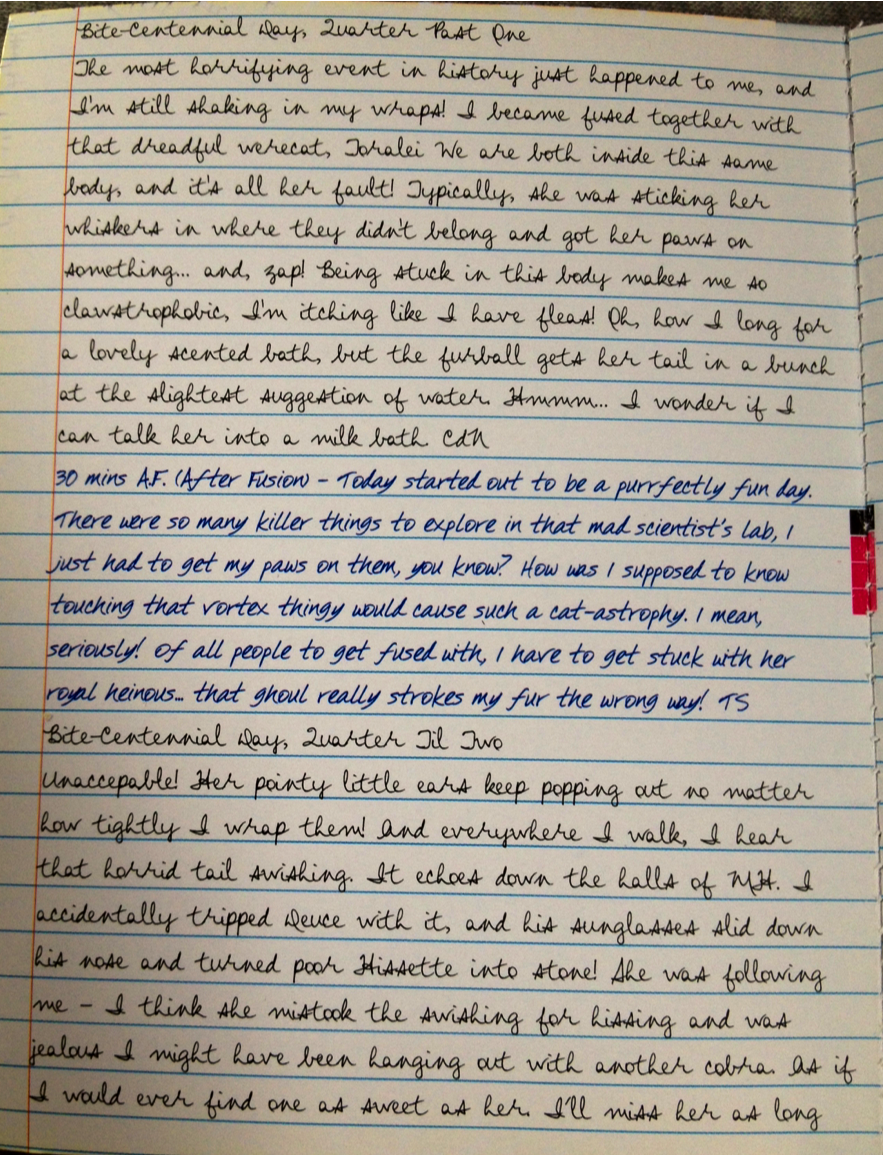 Bite-Centennial Day, Quarter Past One
The most horrifying event in history just happened to me, and
I'm still shaking in my wraps! I became fused together with
that dreadful werecat, Toralei We are both inside this same
body, and it's all her fault! Typically, she was sticking her
whiskers in where they didn't belong and got her paws on
something... and, zap! Being stuck in this body makes me so
clawstrophobic, I'm itching like I have fleas! Oh, how I long for
a lovely scented bath, but the furball gets her tail in a bunch
at the slightest suggestion of water. Hmmm... I wonder if I
can talk her into a milk bath. CdN
30 mins A.F. (After Fusion) – Today started out to be a purrfectly fun day.
There were so many killer things to explore in that mad scientist's lab, I
just had to get my paws on them, you know? How was I supposed to know
touching that vortex thingy would cause such a cat-astrophy. I mean,
seriously! Of all people to get fused with, I have to get stuck with her
royal heinous... that ghoul really strokes my fur the wrong way! TS
Bite-Centennial Day, Quarter Til Two
Unaccepable! Her pointy little ears keep popping out no matter
how tightly I wrap them! And everywhere I walk, I hear
that horrid tail swishing. It echoes down the halls of MH. I
accidentally tripped Deuce with it, and his sunglasses slid down
his nose and turned poor Hissette into stone! She was following
me – I think she mistook the swishing for hissing and was
jealous I might have been hanging out with another cobra. As if
I would ever find one as sweet as her. I'll miss her as long